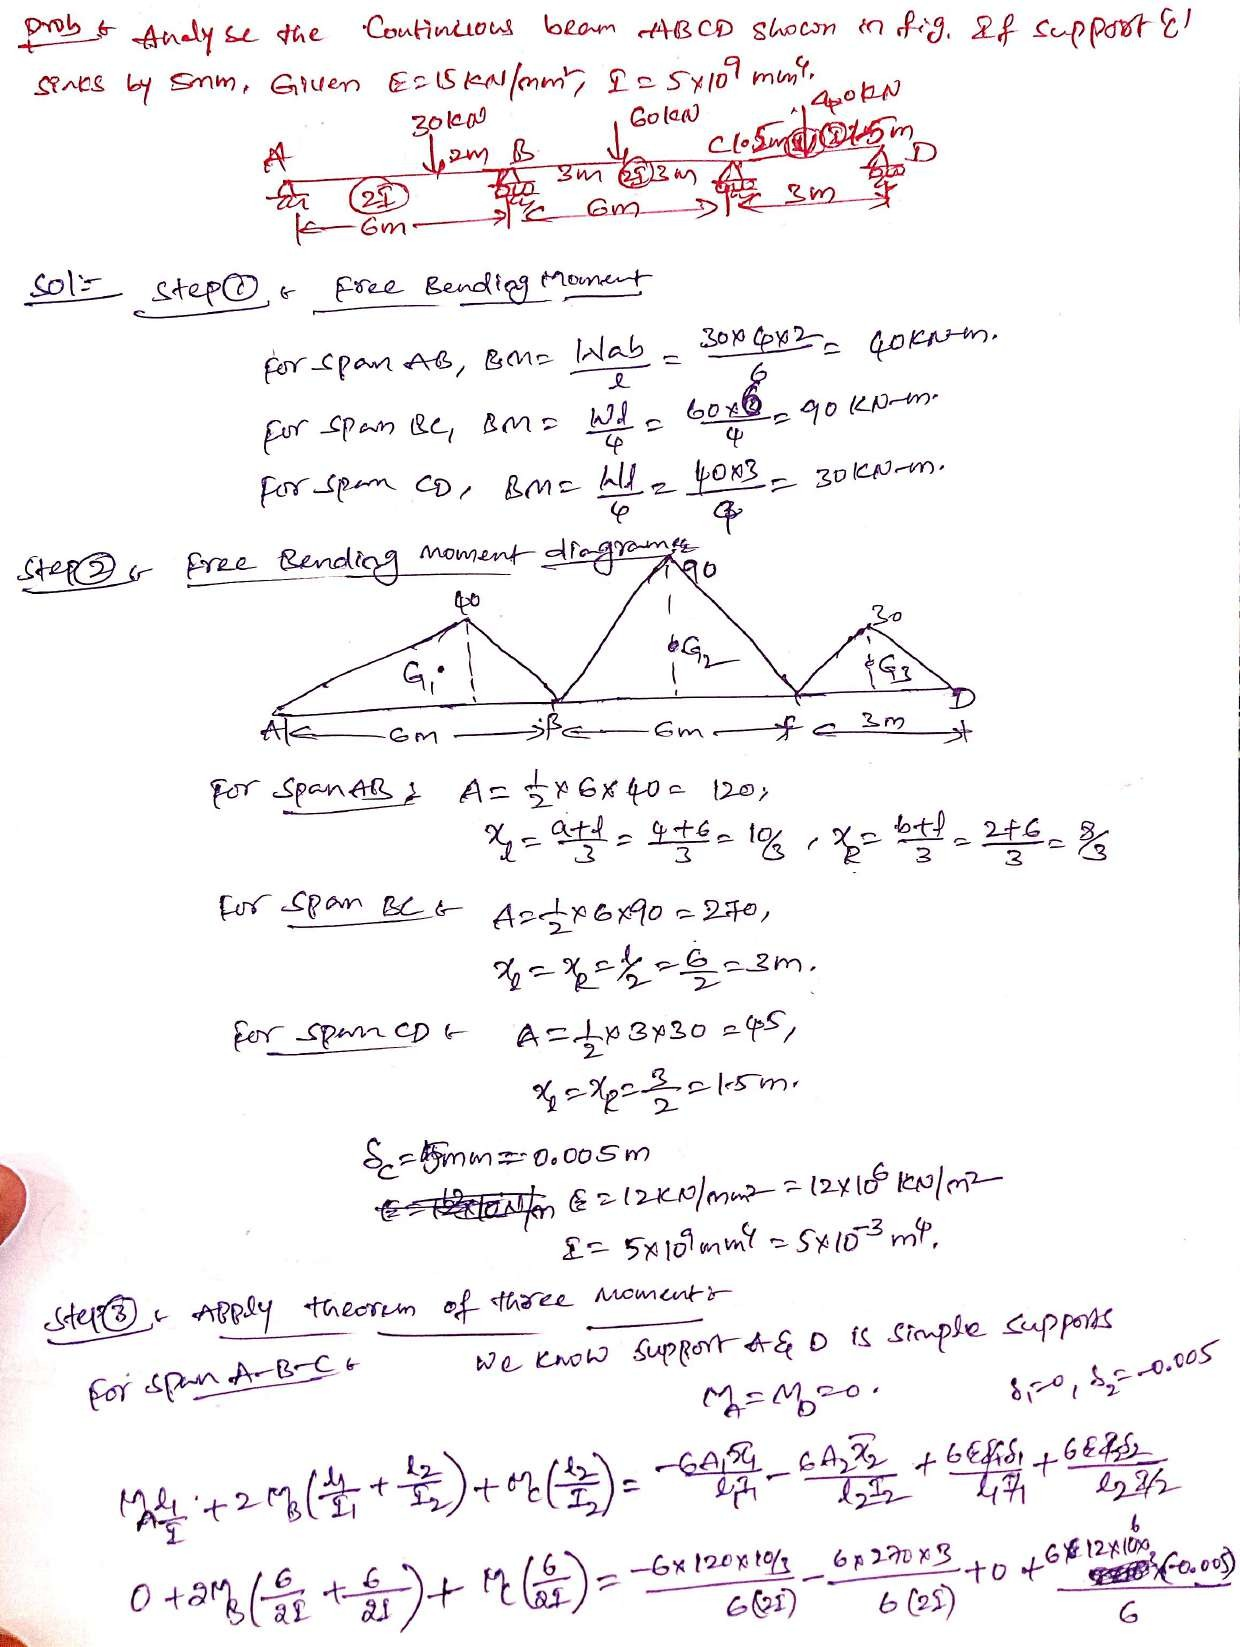 Prob :- Analyse the Continuous beam ABCD shown in fig. If support 'C'
sinks by 5mm, Given E=15KN/mm², I = 5×10⁹ mm⁴.
30KN 60KN 40KN
A 2m B 3m 2I 3m C 1.5m I 1.5m D
2I
6m 6m 3m
Sol:- Step① :- Free Bending Moment
for span AB, BM = Wab/l = 30×4×2/6 = 40KN-m.
for span BC, BM = Wl/4 = 60×6/4 = 90 KN-m.
for span CD, BM = Wl/4 = 40×3/4 = 30KN-m.
Step② :- Free Bending Moment diagram :-
40 90 30
G₁ G₂ G₃
A 6m B 6m C 3m D
for span AB :- A = 1/2 × 6 × 40 = 120,
x_l = a+l/3 = 4+6/3 = 10/3, x_R = b+l/3 = 2+6/3 = 8/3
for span BC :- A = 1/2 × 6×90 = 270,
x_l = x_R = l/2 = 6/2 = 3m.
for span CD :- A = 1/2 × 3×30 = 45,
x_l = x_R = 3/2 = 1.5m.
δ_C = 5mm = 0.005m
E = 12KN/mm² = 12×10⁶ KN/m²
I = 5×10⁹ mm⁴ = 5×10⁻³ m⁴.
Step③ :- Apply theorem of three Moment :-
for span A-B-C :- We know support A & D is simple supports
M_A = M_D = 0. δ₁=0, δ₂=-0.005
M_A l₁/I + 2M_B (l₁/I₁ + l₂/I₂) + M_C (l₂/I₂) = -6A₁x̄₁/l₁I₁ - 6A₂x̄₂/l₂I₂ + 6EI₁δ₁/l₁I₁ + 6EI₂δ₂/l₂I₂
0 + 2M_B (6/2I + 6/2I) + M_C (6/2I) = -6×120×10/3 / 6(2I) - 6×270×3 / 6(2I) + 0 + 6×12×10⁶×(-0.005) / 6